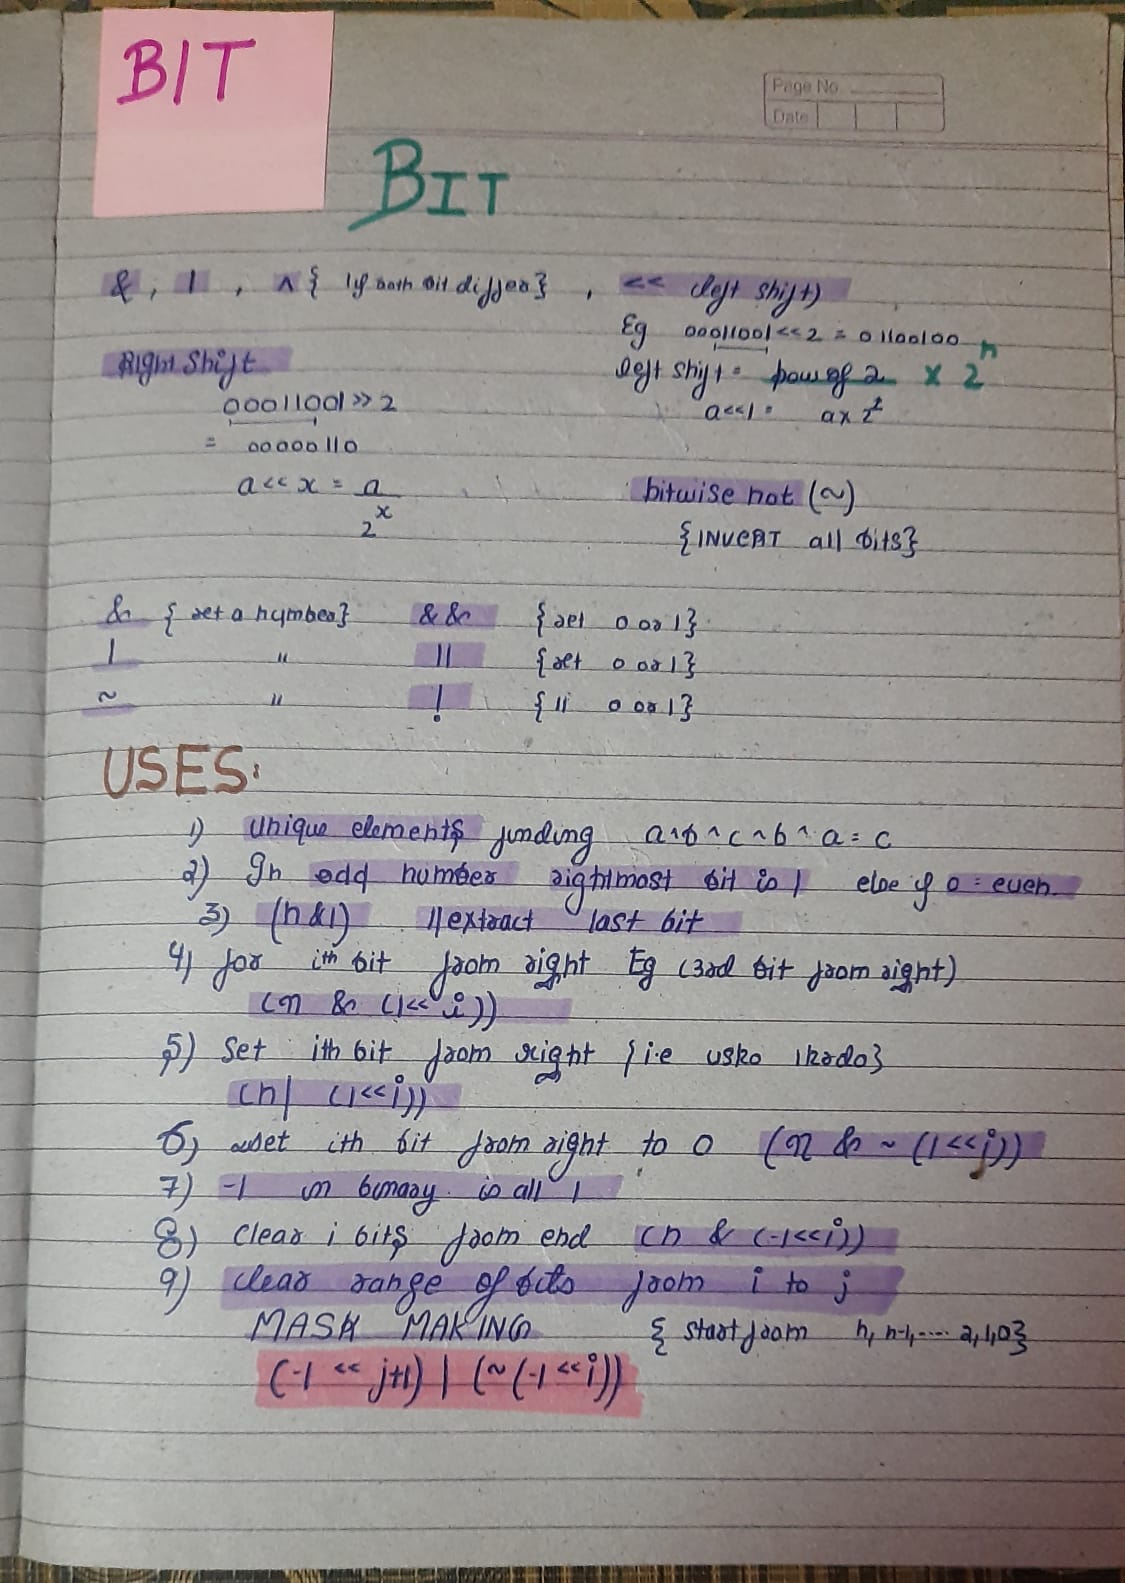 BIT
Page No.
Date
BIT
&, |, ^ { 1 if both bit differ}, << (left shift)
Eg 00011001 << 2 = 01100100
left shift = pow of 2 × 2^n
a<<1 =    a×2^1
Right Shift
00011001 >> 2
= 00000110
a << x = a
2^x
bitwise not (~)
{INVERT all bits}
& { ret a number}   &&   {ret 0 or 1}
|   "   ||   {ret 0 or 1}
~   "   !   {11 0 or 1}
USES:
1) Unique elements finding a^b^c^b^a = c
2) In odd number rightmost bit is 1 else if 0 = even.
3) (n&1) // extract last bit
4) for ith bit from right Eg (3rd bit from right)
(n & (1<<i))
5) Set ith bit from right {i.e usko 1 krdo}
(n| (1<<i))
6) set ith bit from right to 0 (n & ~ (1<<i))
7) -1 in binary is all 1
8) Clear i bits from end (n & (-1<<i))
9) clear range of bits from i to j
MASK MAKING { start from n, n-1, .... 2,1,0}
(-1 << j+1) | (~(-1<<i))